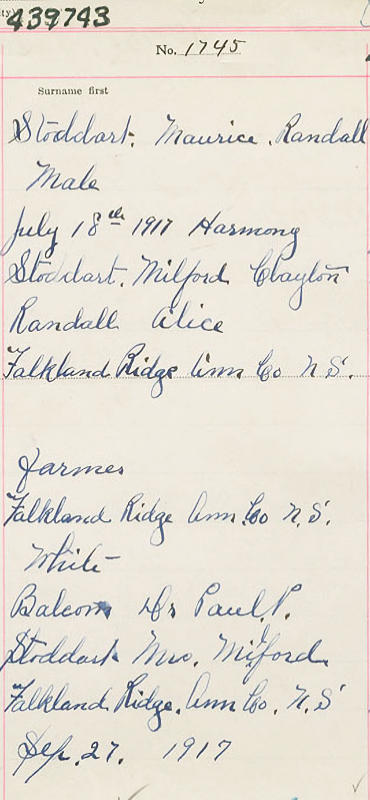 439743
No. 1745
Surname first
Stoddart. Maurice. Randall
Male
July 18th 1917 Harmony
Stoddart. Milford Clayton
Randall Alice
Falkland Ridge Ann Co N.S.
Farmer
Falkland Ridge Ann. Co N.S.
White
Balcom Dr Paul. P.
Stoddart Mrs. Milford
Falkland Ridge. Ann Co. N.S
Sep. 27. 1917